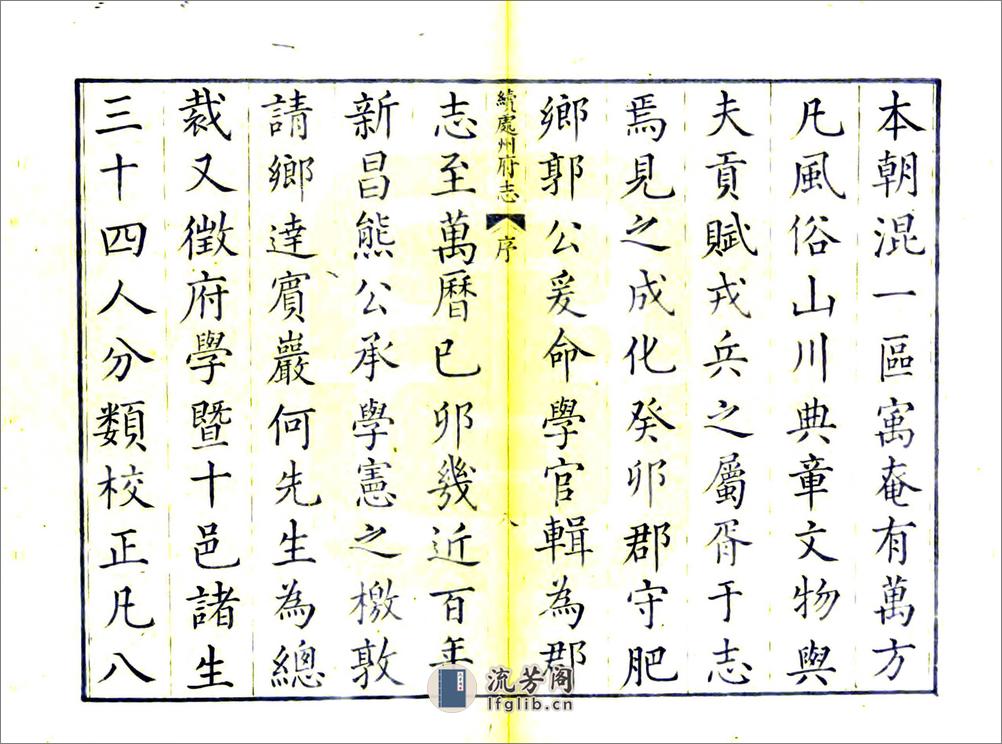 本朝混一區寓奄有萬方
凡風俗山川典章文物與
夫貢賦戎兵之屬胥于志
焉見之成化癸卯郡守肥
鄉郭公爰命學官輯為郡
續處州府志
序
八
志至萬曆已卯幾近百年
新昌熊公承學憲之檄敦
請鄉達賓巖何先生為總
裁又徵府學暨十邑諸生
三十四人分類校正凡八
流芳阁
lfglib.cn